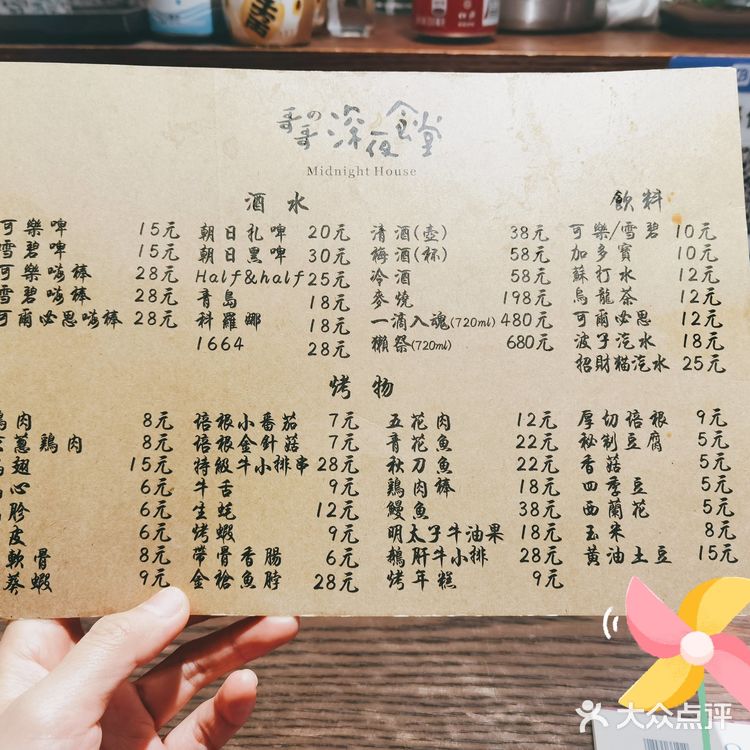 哥の哥 深夜食堂
Midnight House
酒水
可樂啤 15元
雪碧啤 15元
可樂嗨棒 28元
雪碧嗨棒 28元
可爾必思嗨棒 28元
朝日扎啤 20元
朝日黑啤 30元
Half&half 25元
青島 18元
科羅娜 18元
1664 28元
清酒(壺) 38元
梅酒(杯) 58元
冷酒 58元
麥燒 198元
一滴入魂(720ml) 480元
獺祭(720ml) 680元
飲料
可樂/雪碧 10元
加多寶 10元
蘇打水 12元
烏龍茶 12元
可爾必思 12元
波子汽水 18元
招財貓汽水 25元
烤物
肉 8元
蔥鷄肉 8元
翅 15元
心 6元
胗 6元
皮 6元
軟骨 8元
葵蝦 9元
培根小番茄 7元
培根金針菇 7元
特級牛小排串 28元
牛舌 9元
生蚝 12元
烤蝦 9元
帶骨香腸 6元
金槍魚脖 28元
五花肉 12元
青花魚 22元
秋刀魚 22元
鷄肉棒 18元
鰻魚 38元
明太子牛油果 18元
鵝肝牛小排 28元
烤年糕 9元
厚切培根 9元
秘制豆腐 5元
香菇 5元
四季豆 5元
西蘭花 5元
玉米 8元
黃油土豆 15元
大众点评